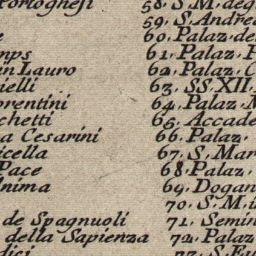 58. S. M. deg
59. S. Andre
60. Palaz. de
61. Palaz. P
in Lauro 62. Palaz. C
ielli 63. SS. XII.
orentini 64. Palaz. M
chetti 65. Accade
a Cesarini 66. Palaz.
icella 67. S. Mar
Pace 68. Palaz.
nima 69. Dogan
70. S. M. i
de Spagnuoli 71. Semin
della Sapienza 72. Palaz